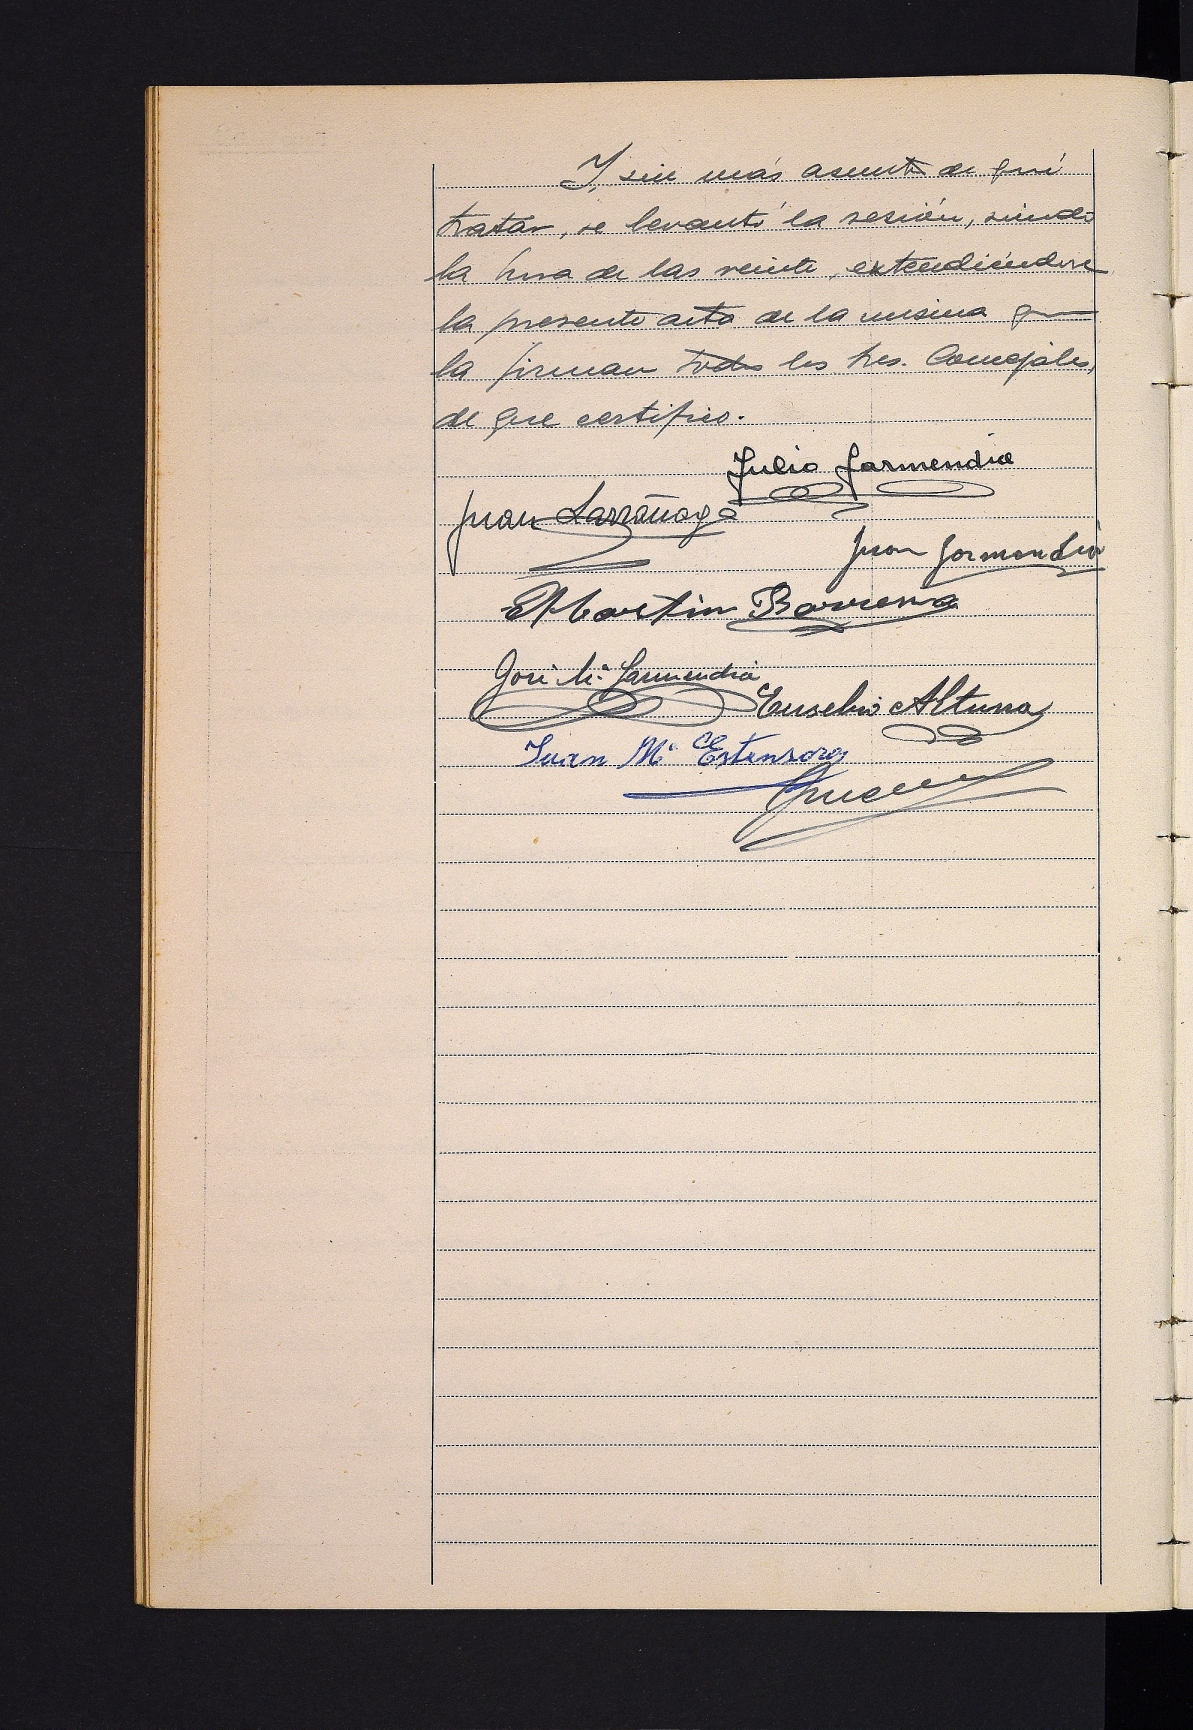 Y, sin más asunto de qué
tratar, se levantó la sesión, siendo
la hora de las veinte, extendiéndose
la presente acta de la misma que
la firman todos los Sres. Concejales,
de que certifico.
Julio Garmendia
Juan Larrañaga
Juan Garmendia
Martin Barrena
José Mª Garmendia
Eusebio Altuna
Juan Mª Estensoro